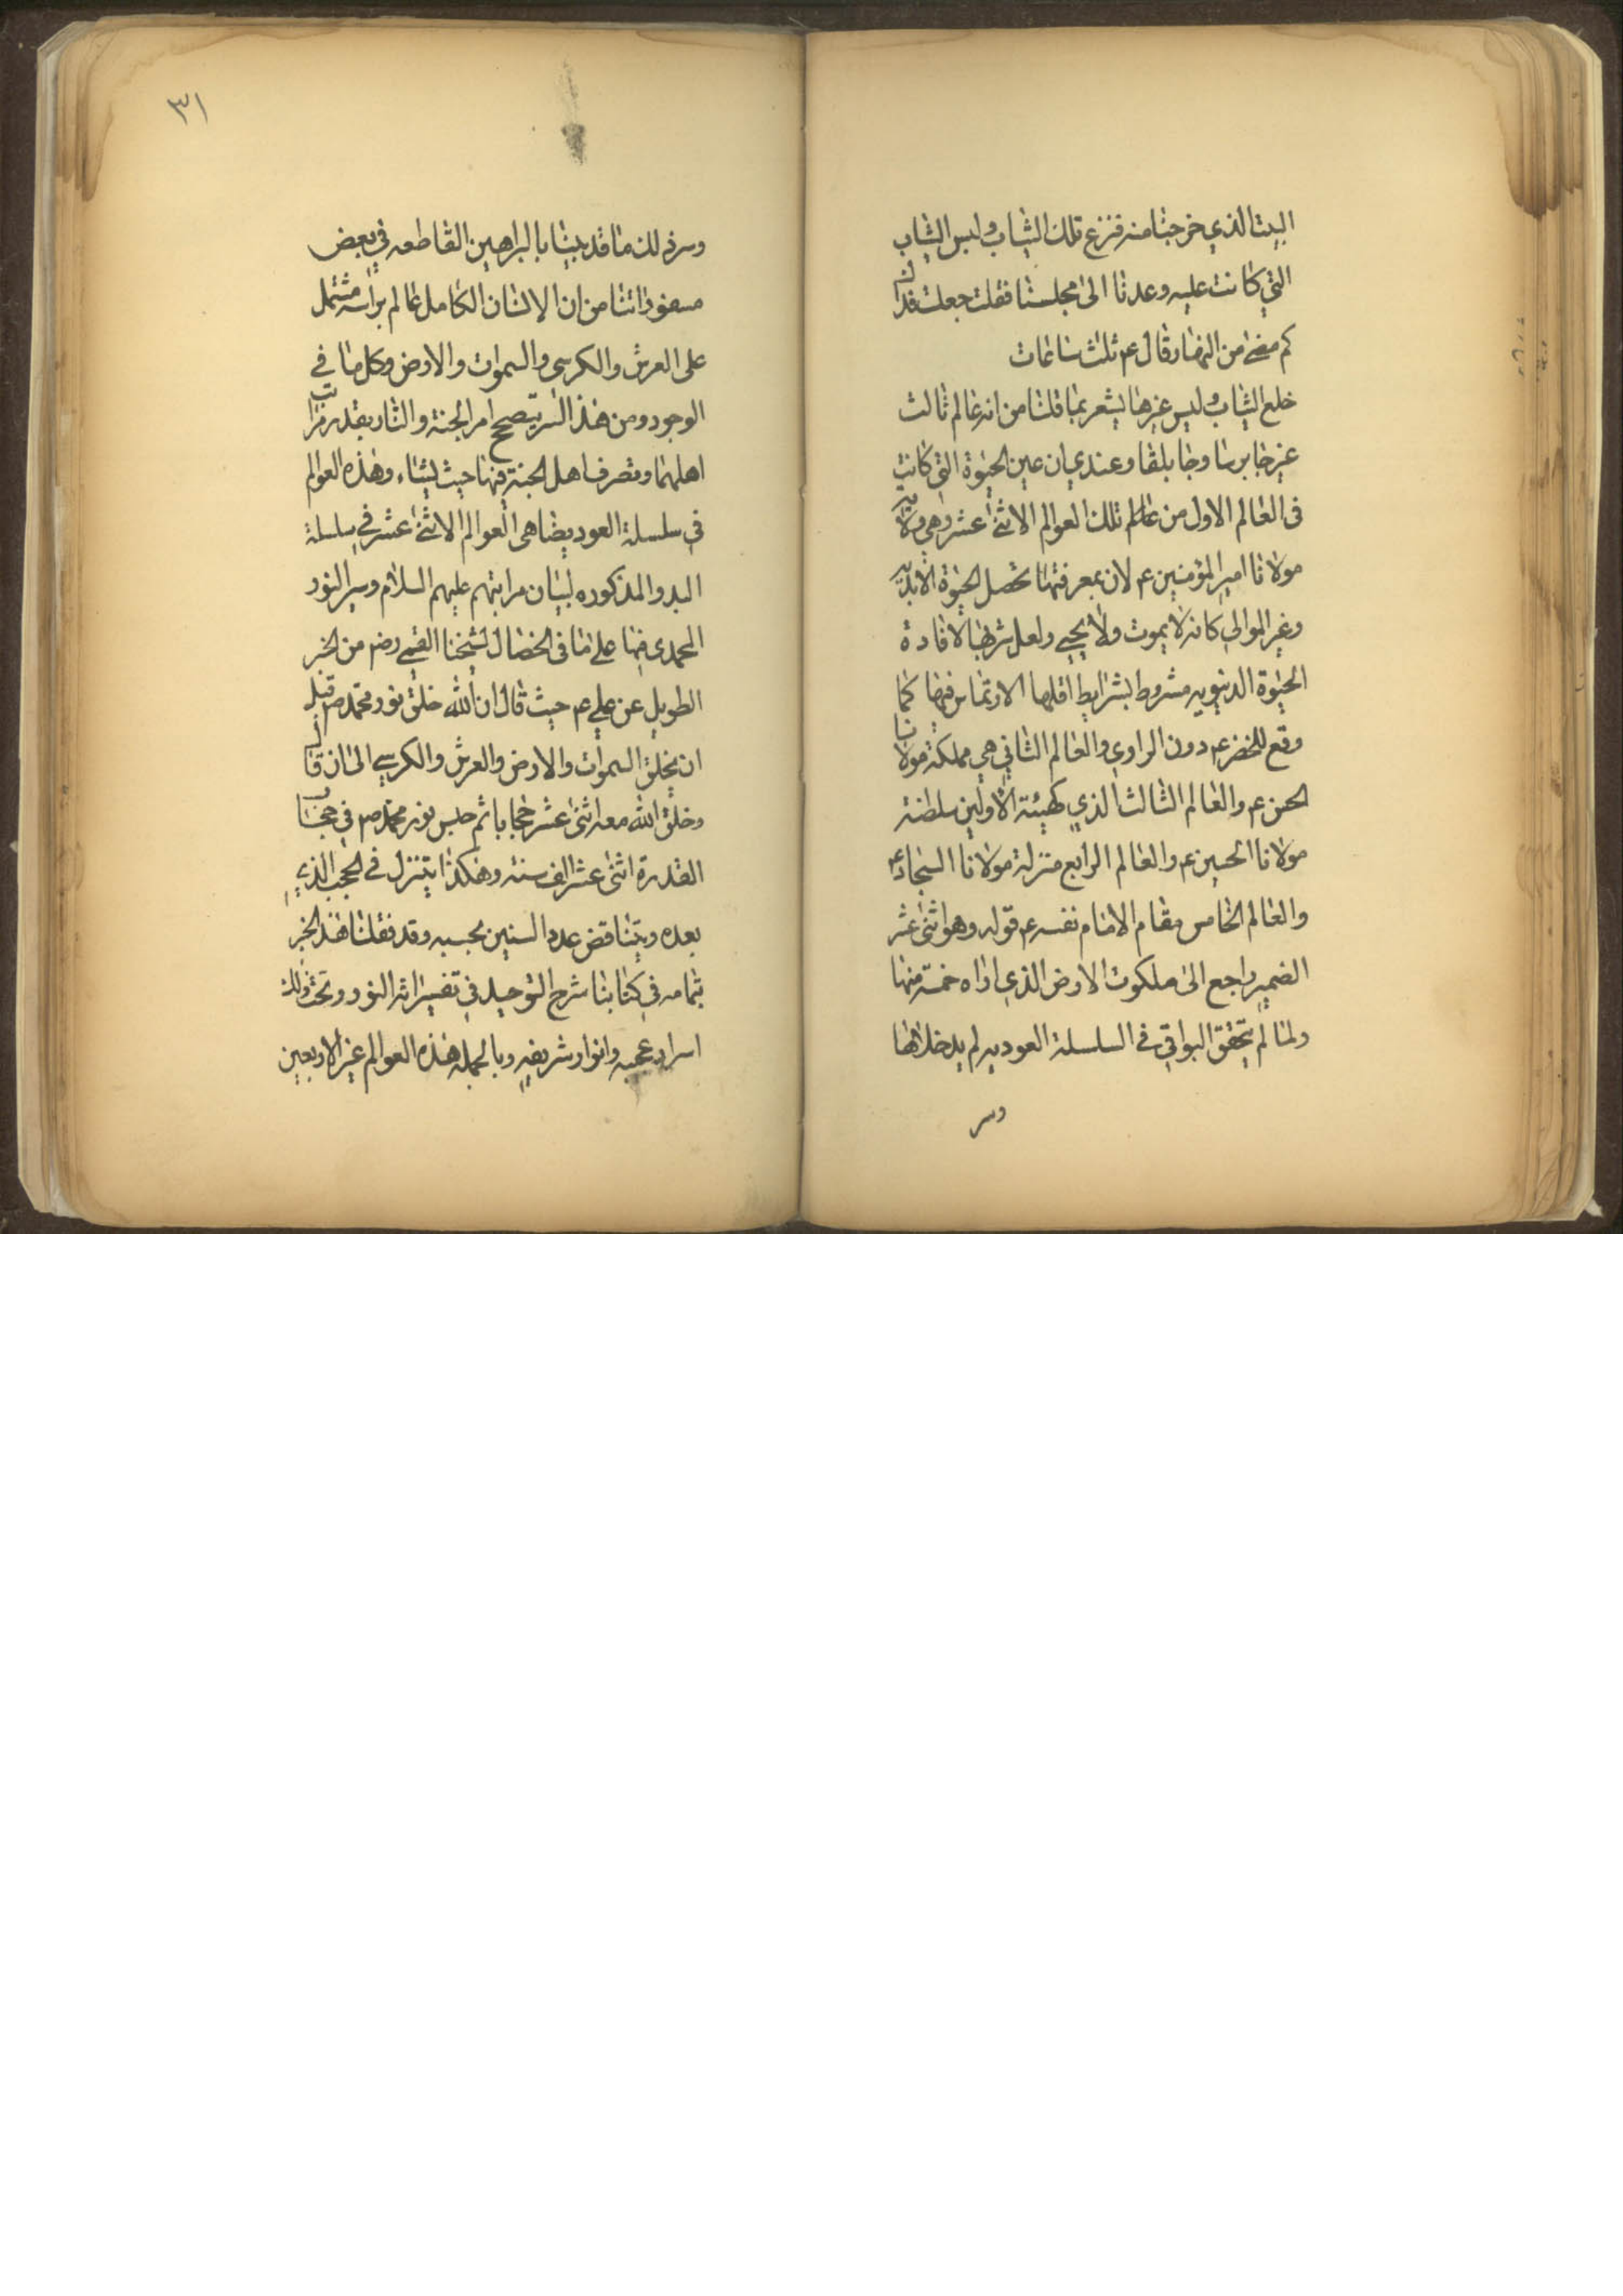 البيت الذي خرجنا منه فنزع تلك الثياب ولبس الثياب
التي كانت عليه وعدنا الى مجلسنا فقلت جعلت فداك
كم مضى من النهار قال ع ثلث ساعات
خلع الثياب ولبس غيرها يشعر بما قلنا من انه عالم ثالث
غير جابرسا وجابلقا وعندي ان عين الحيوة التي كانت
فى العالم الاول من تلك العوالم الاثنى عشر وهي ولاية
مولانا امير المؤمنين ع لان بمعرفتها تحصل الحيوة الابدية
وغير الموالي كانه لا يموت ولا يحيى ولعل شربها لافادة
الحيوة الدنيويه مشروط بشرايط اقلها الارتماس فيها كما
وقع للخضر ع دون الراوي والعالم الثاني هي مملكة مولانا
الحسن ع والعالم الثالث الذي كهيئة الاولين سلطنة
مولانا الحسين ع والعالم الرابع منزلة مولانا السجاد ع
والعالم الخامس مقام الامام نفسه ع قوله وهو اثنى عشر
الضمير راجع الى ملكوت الارض الذي اراه خمسة منها
ولما لم يتحقق البواقي في السلسلة العوديه لم يدخلاها
وسر
٣١
وسر ذلك ما قد بينا بالبراهين القاطعه في بعض
مسفوراتنا من ان الانسان الكامل عالم براسه مشتمل
على العرش والكرسى والسموات والارض وكل ما في
الوجود ومن هذا السر يتصحح امر الجنة والنار بقدر مراتب
اهلهما وتصرف اهل الجنة فيها حيث يشاء وهذه العوالم
في سلسلة العود يضاهى العوالم الاثنى عشر في سلسلة
البدو المذكوره لبيان مراتبهم عليهم السلام وسير النور
المحمدى فيها على ما فى الخصال لشيخنا القمي رض من الخبر
الطويل عن علي ع حيث قال ان الله خلق نور محمد ص قبل
ان يخلق السموات والارض والعرش والكرسي الى ان قال
وخلق الله معه اثنى عشر حجابا ثم حبس نور محمد ص في حجاب
القدرة اثنى عشر الف سنة وهكذا يتنزل في الحجب الذي
بعده ويتناقص عدد السنين بحسبه وقد نقلنا هذا الخبر
بتمامه في كتابنا شرح التوحيد في تفسير اية النور وتحت ذلك
اسرار عجيبه وانوار شريفه وبالجمله هذه العوالم غير الاربعين